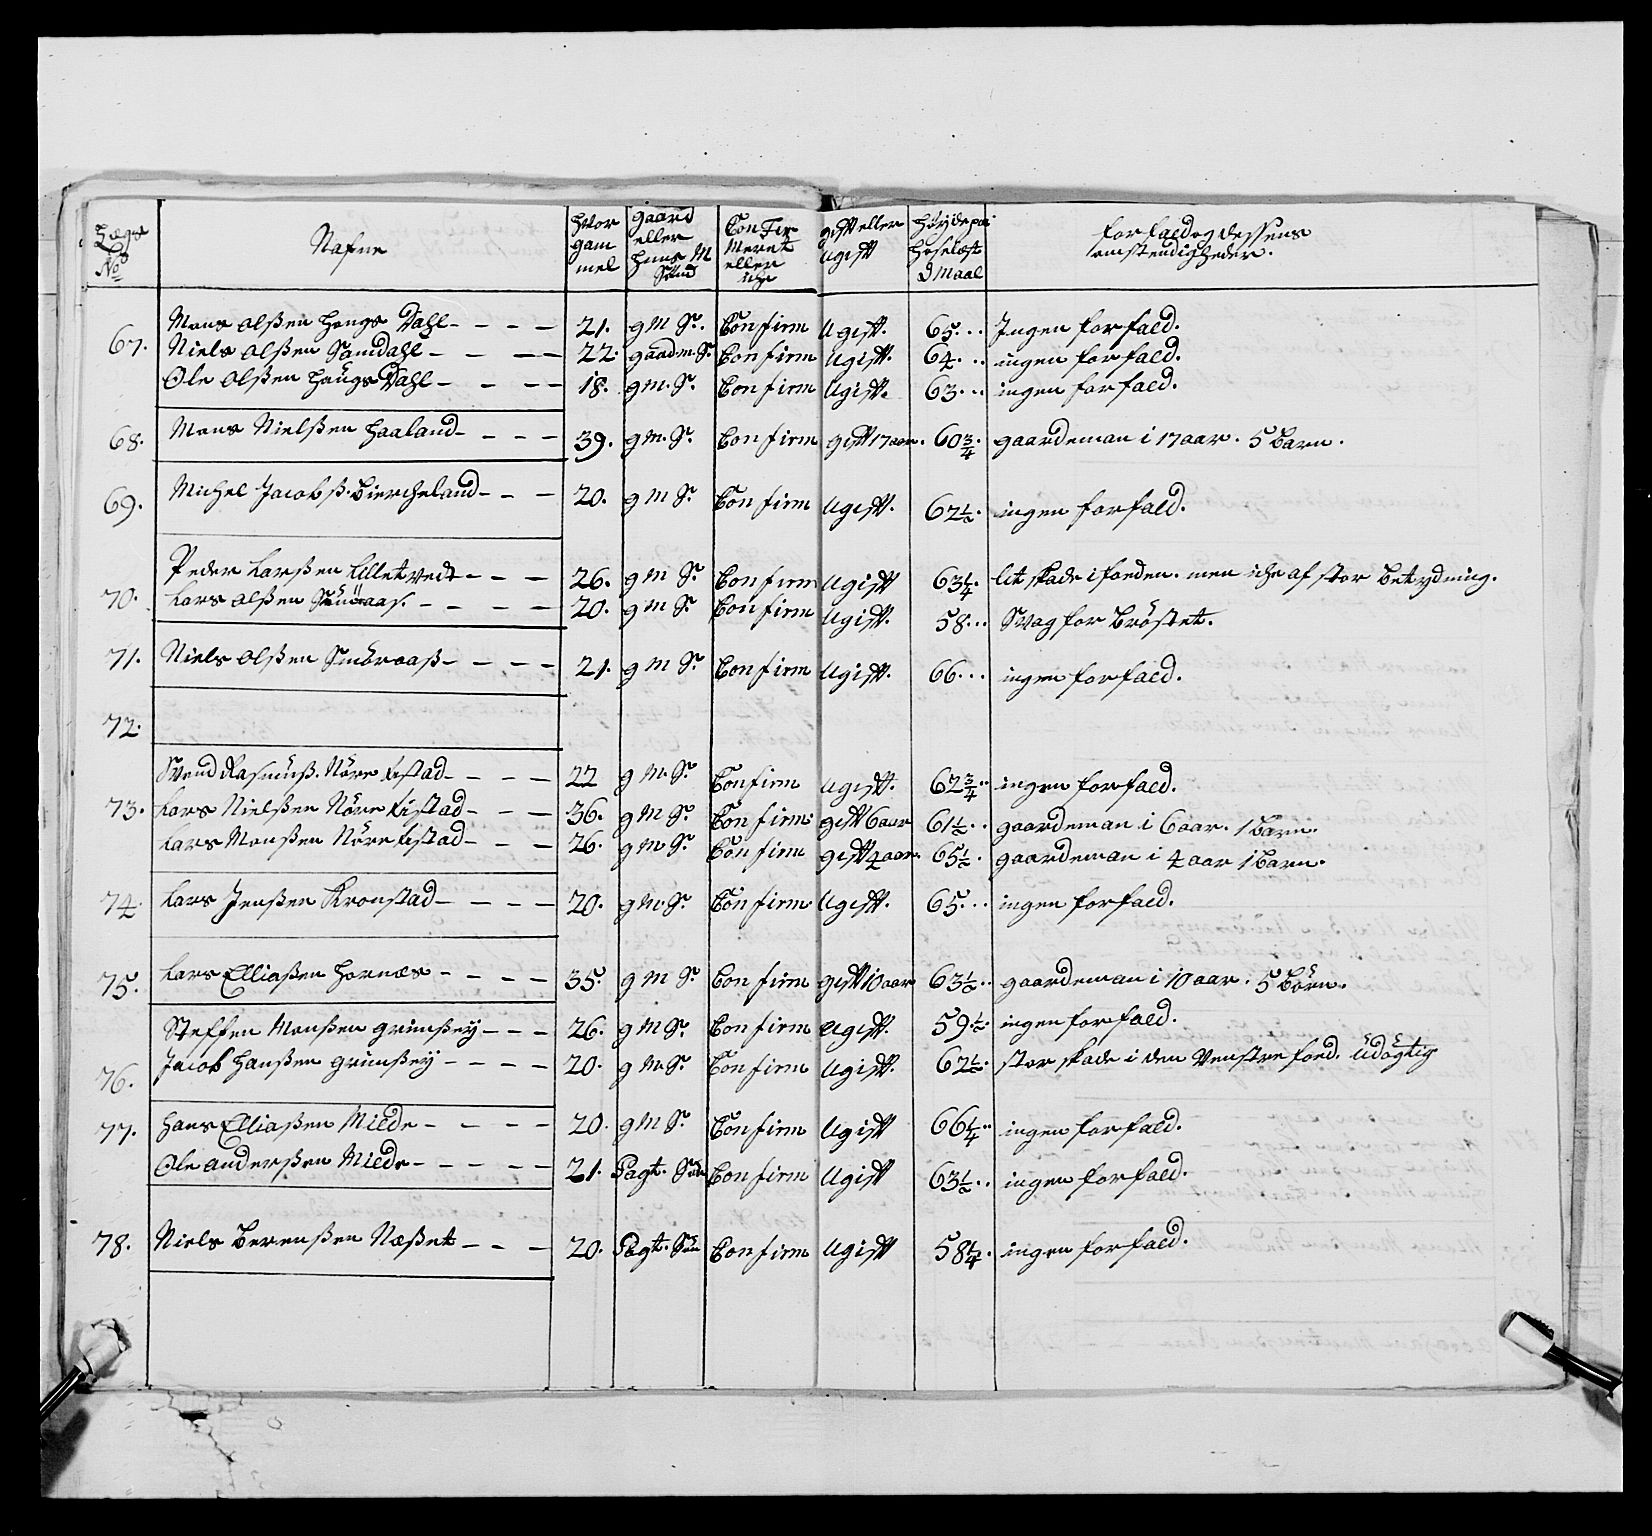 Lægs No Nafne hvor gammel gaard eller huus M Sønn Confirmeret eller iche gift eller ugift høyde paa hoselæst Maal forfald og dessens omstendigheder.
67. Mons Olßen Haugs Dahl 21. g M S. Confirm Ugift. 65... Ingen forfald.
Niels Olßen Samdahl 22. gaadm. S. Confirm Ugift. 64... ingen forfald.
Ole Olßen Haugs Dahl 18. g M. S. Confirm Ugift. 63... ingen forfald.
68. Mons Nielßen Haaland 39. g M. S. Confirm gift 17 aar. 60 3/4. gaardeman i 17 aar. 5 Barn.
69. Michel Jacobß. Biercheland 20. g M S. Confirm Ugift. 62 1/2. ingen forfald.
70. Peder Larßen Lilletvedt 26. g M S. Confirm Ugift 63 1/4. lit skade i foeden. men iche af stor betydning.
Lars Olßen Smøraas. 20. g M S. Confirm Ugift. 58... Svag for Bröstet.
71. Niels Olßen Smöraaß 21. g M S. Confirm Ugift. 66... ingen forfald.
72.
73. Svend Rasmuß. Nöre Fistad 22 g M. S. Confirm Ugift. 62 3/4.. ingen forfald.
Lars Nielßen Nöre Fistad 36. g M S. Confirm gift 6 aar 61 1/2.. gaardeman i 6 aar. 1 Barn.
Lars Monßen Nöre Fistad 26. g M S. Confirm gift 4 aar. 65 1/2. gaardeman i 4 aar 1 Barn.
74. Lars Jenßen Kronstad 20. g M. S. Confirm Ugift. 65... ingen forfald.
75. Lars Elliaßen Hornæs 35. g M S. Confirm gift 10 aar 63 1/2.. gaardeman i 10 aar. 5 Börn.
76. Steffen Monßen Grimßey 26. g M S. Confirm Ugift. 59 1/2. ingen forfald.
Jacob Hanßen Grimßey 20. g M. S. Confirm Ugift. 62 1/2. stor skade i den Venstre foed. Udögtig
77. Hans Elliaßen Mielde 20. g M S. Confirm Ugift 66 1/4.. ingen forfald.
Ole Anderßen Mielde 21. Pagt. Søn Confirm Ugift 63 1/2.. ingen forfald.
78. Niels Berenßen Næßet 20. Pagt. Søn Confirm Ugift 58 1/4. ingen forfald.